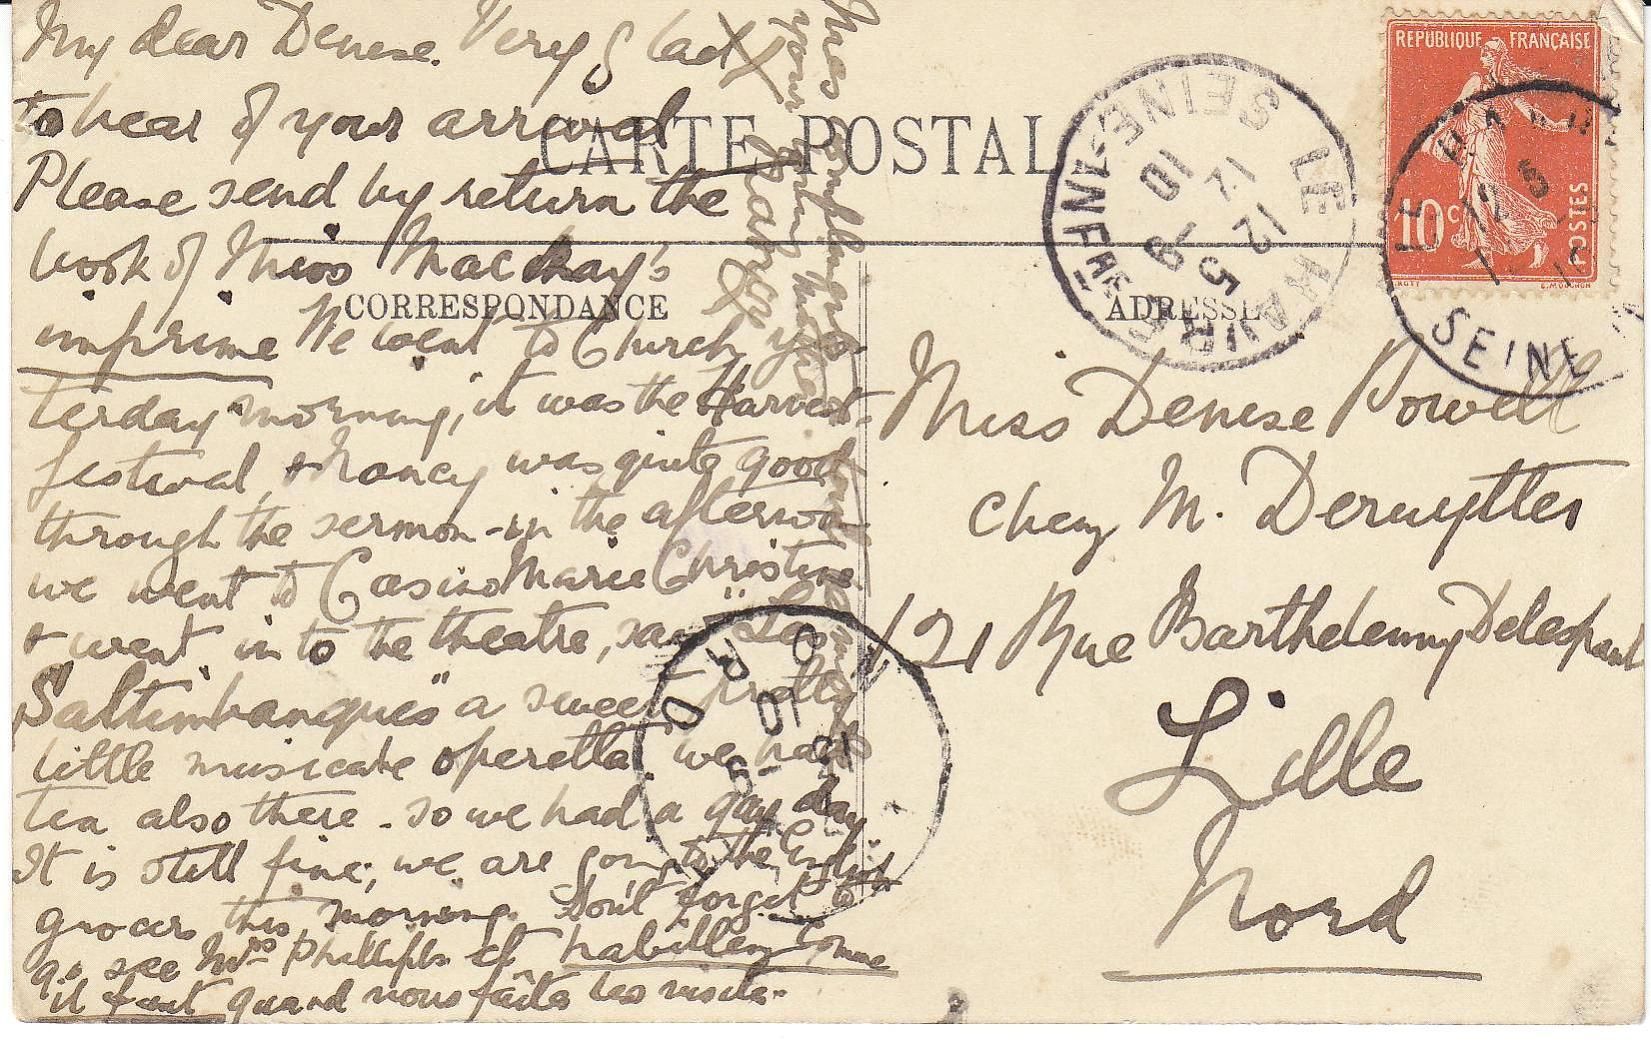 My dear Denise. Very glad
to hear of your arrival
Please send by return the
book of Miss MacKay's
imprime We went to Church yes-
terday morning, it was the Harvest-
festival, & Nancy was quite good
through the sermon - in the afternoon
we went to Casino Marie Christine
& went in to the theatre, saw "Les
Saltimbanques" a sweet pretty
little musicale operetta. we had
tea also there - so we had a gay day
It is still fine, we are going to the English
grocers this morning. Don't forget to
go see Mrs Phillipps et habillez comme
il faut quand vous faites les visites.
Mes
your Nancy
CARTE POSTALE
CORRESPONDANCE
ADRESSE
Miss Denise Powell
chez M. Deruytter
121 Rue Barthelemy Delespaul
Lille
Nord
REPUBLIQUE FRANÇAISE
10c
POSTES
E.MOUCHON
LE HAVRE
SEINE-INFRE
12 5
5-9
10
LE HAVRE
12 5
SEINE
NORD
10